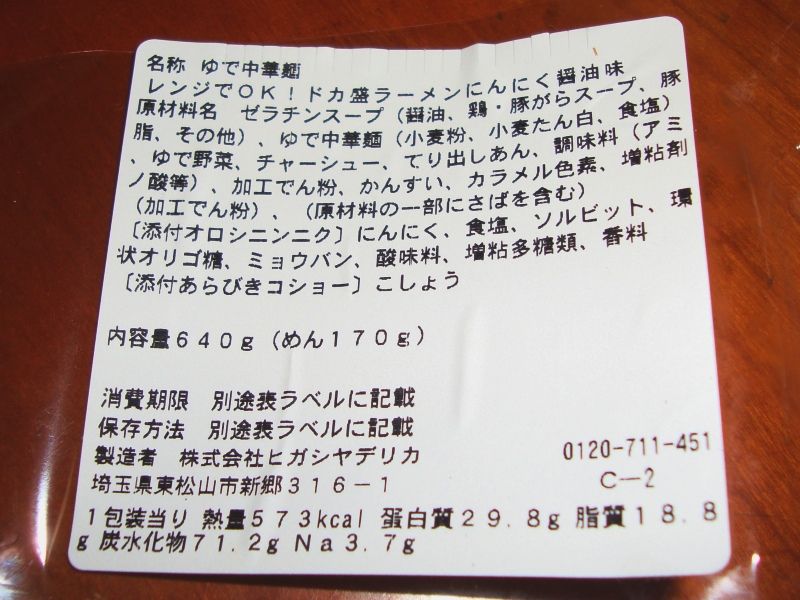 名称 ゆで中華麺
レンジでOK！ドカ盛ラーメンにんにく醤油味
原材料名 ゼラチンスープ（醤油、鶏・豚がらスープ、豚
脂、その他）、ゆで中華麺（小麦粉、小麦たん白、食塩）
、ゆで野菜、チャーシュー、てり出しあん、調味料（アミ
ノ酸等）、加工でん粉、かんすい、カラメル色素、増粘剤
（加工でん粉）、（原材料の一部にさばを含む）
〔添付オロシニンニク〕にんにく、食塩、ソルビット、環
状オリゴ糖、ミョウバン、酸味料、増粘多糖類、香料
〔添付あらびきコショー〕こしょう
内容量640g（めん170g）
消費期限 別途表ラベルに記載
保存方法 別途表ラベルに記載
製造者 株式会社ヒガシヤデリカ 0120-711-451
埼玉県東松山市新郷316-1 C-2
1包装当り 熱量573kcal 蛋白質29.8g 脂質18.8
g 炭水化物71.2g Na3.7g